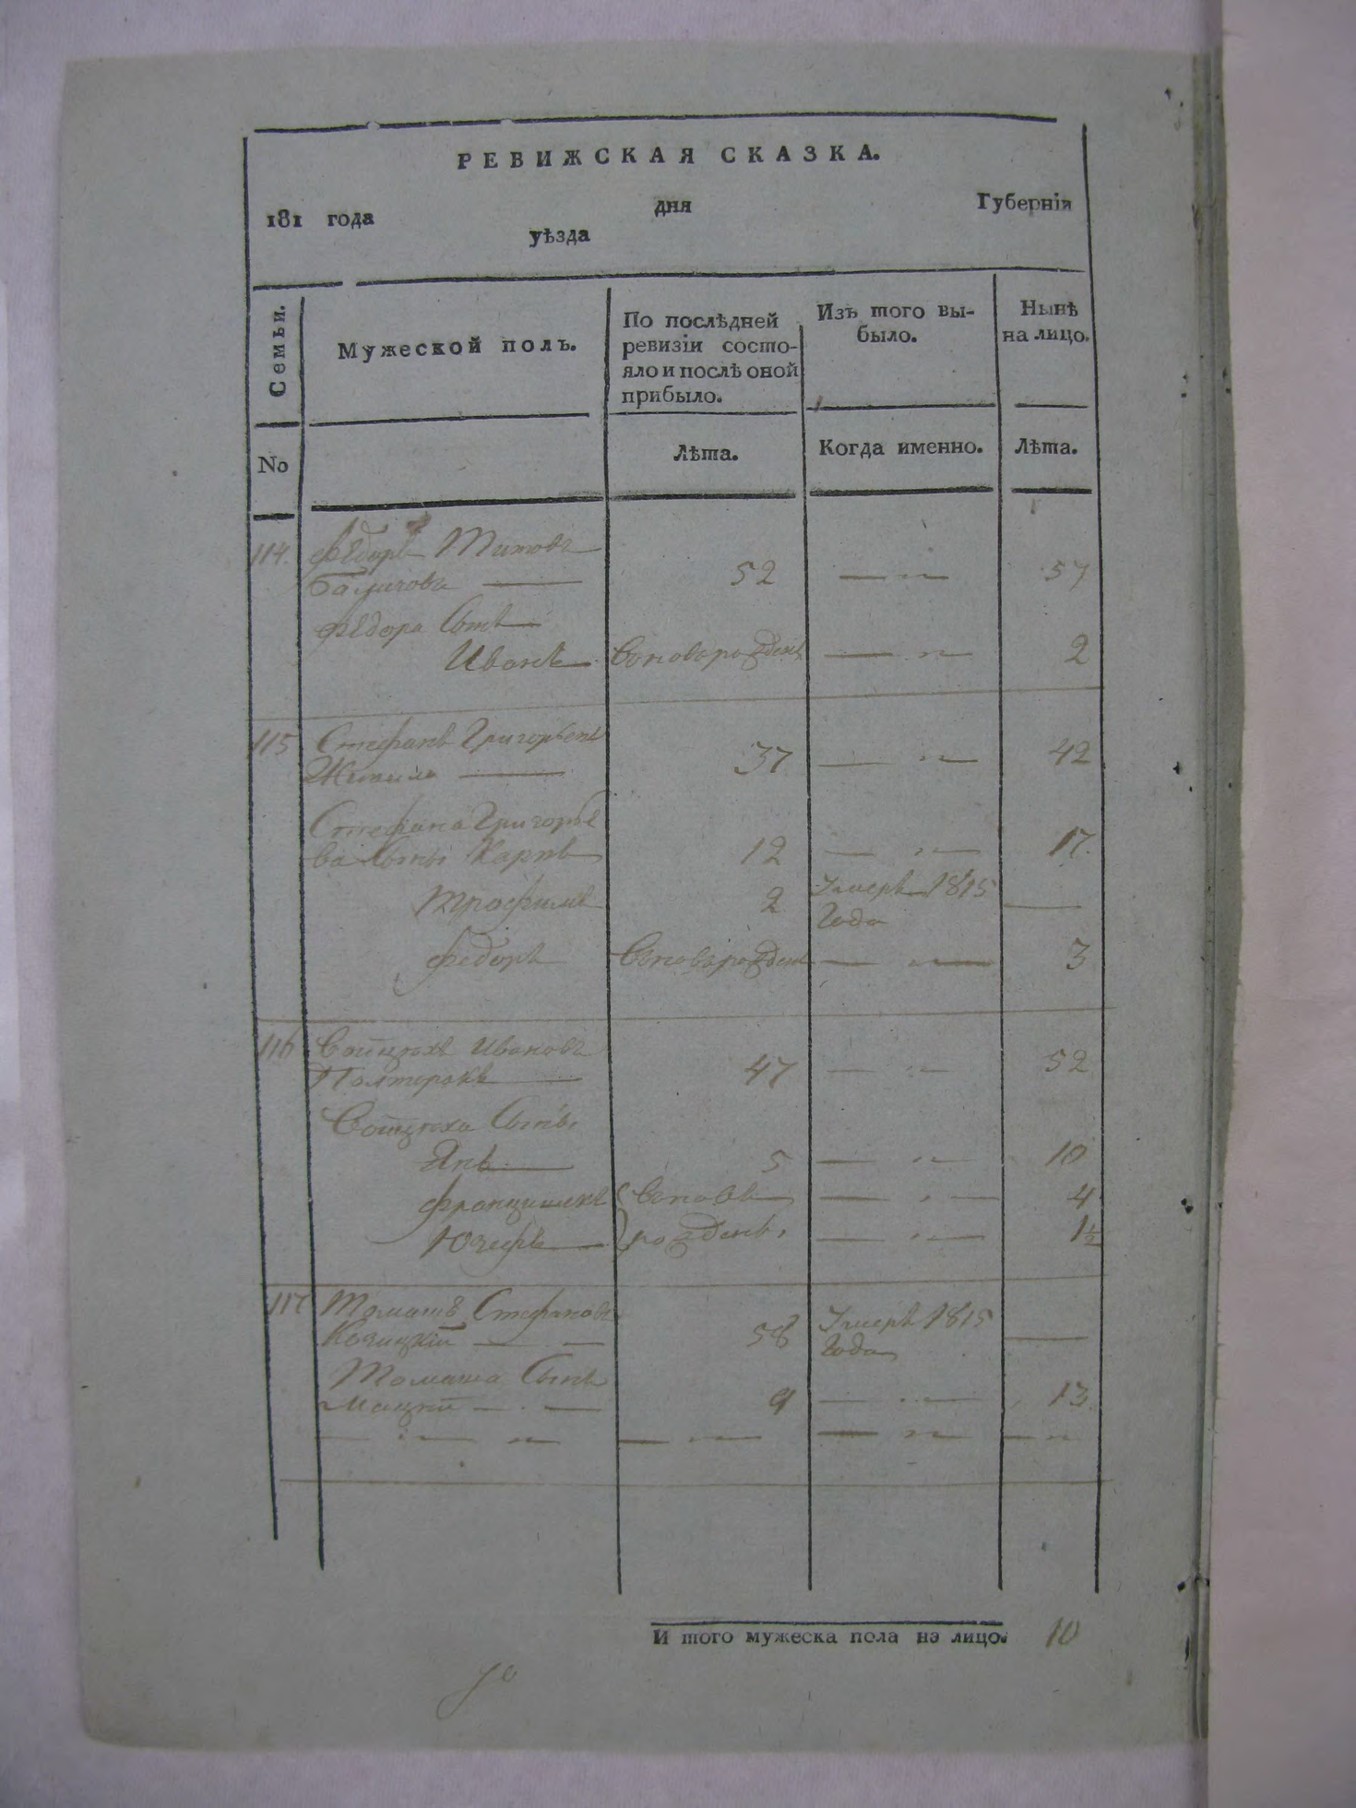 РЕВИЖСКАЯ СКАЗКА.
181 года дня Губернія
уѣзда
Семьи.
Мужеской полъ.
По послѣдней ревизіи состо-
яло и послѣ оной прибыло.
Изъ того вы-
было.
Нынѣ
на лицо.
No
Лѣта.
Когда именно.
Лѣта.
114. Федоръ Титовъ
52 — „ — 57
Федора Сынъ
Иванъ — вновь рожденъ — „ — 2
115 Стефанъ Григорьевъ
37 — „ — 42
Стефана Григорье
ва Сыны Карпъ 12 — „ — 17.
Трофимъ 2 Умеръ 1815
Года —
Федоръ вновь рожден — „ — 3
116 Ивановъ
47 — „ — 52
Сыны,
Янъ — 5 — „ — 10
Францишекъ вновь — „ — 4
Юзефъ — рожденъ, — „ — 1½
117 Томашъ Стефановъ
58 Умеръ 1815
Года —
Томаша Сынъ
9 — „ — 13.
И того мужеска пола нэ лицо. 10